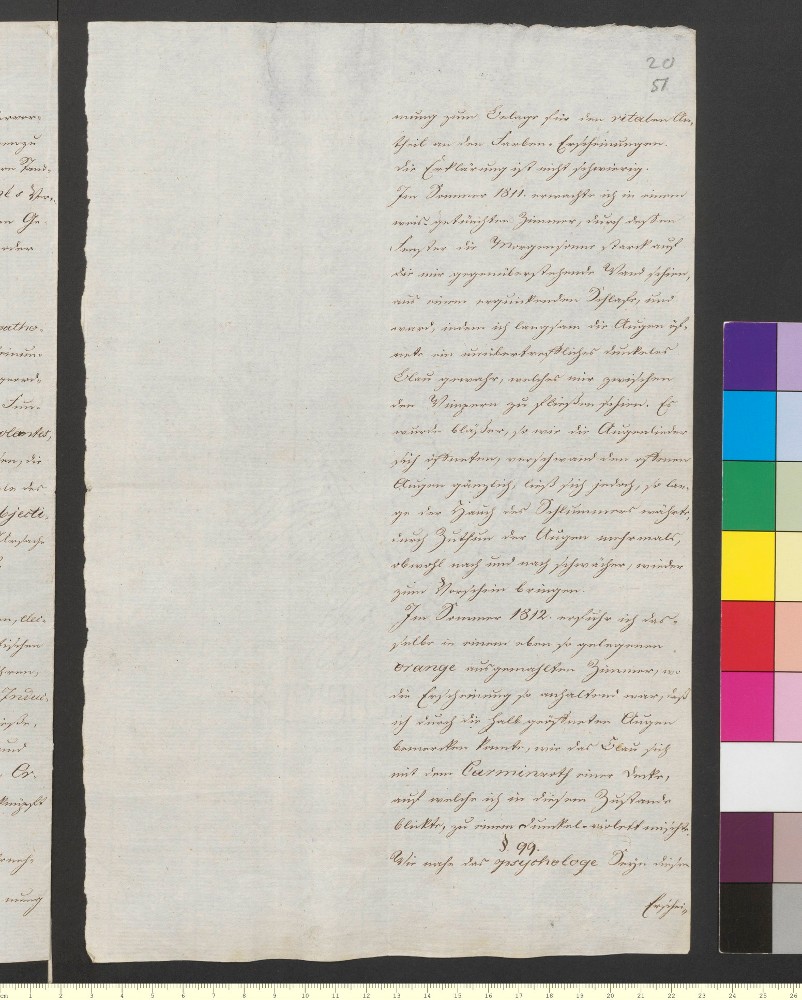 20
51
nung zum Belage für den vitalen An-
theil an den Farben-Erscheinungen.
Die Erklärung ist nicht schwierig.
Im Sommer 1811. erwachte ich in einem
weis-getünchten Zimmer, durch dessen
Fenster die Morgensonne starck auf
die mir gegenüberstehende Wand schien,
aus einem erquickenden Schlafe, und
ward, indem ich langsam die Augen öf-
nete ein unübertreffliches dunkeles
Blau gewahr, welches mir zwischen
den Wimpern zu fließen schien. Es
wurde bläßer, so wie die Augenlieder
sich öffneten, verschwand den offenen
Augen gänzlich, ließ sich jedoch, so lan-
ge der Hauch des Schlummers währte,
durch Zuthun der Augen mehrmals,
obwohl nach und nach schwächer, wieder
zum Vorschein bringen.
Im Sommer 1812. erfuhr ich das-
selbe in einem eben so gelegenen
orange ausgemahlten Zimmer, wo
die Erscheinung so anhaltend war, daß
ich durch die halbgeöffneten Augen
bemercken konnte, wie das Blau sich
mit dem Carminroth einer Decke,
auf welche ich in diesem Zustande
blickte, zu einem dunkel-violett mischte.
§ 99.
Wie nahe das psychologe Seyn diesen
Erschei-